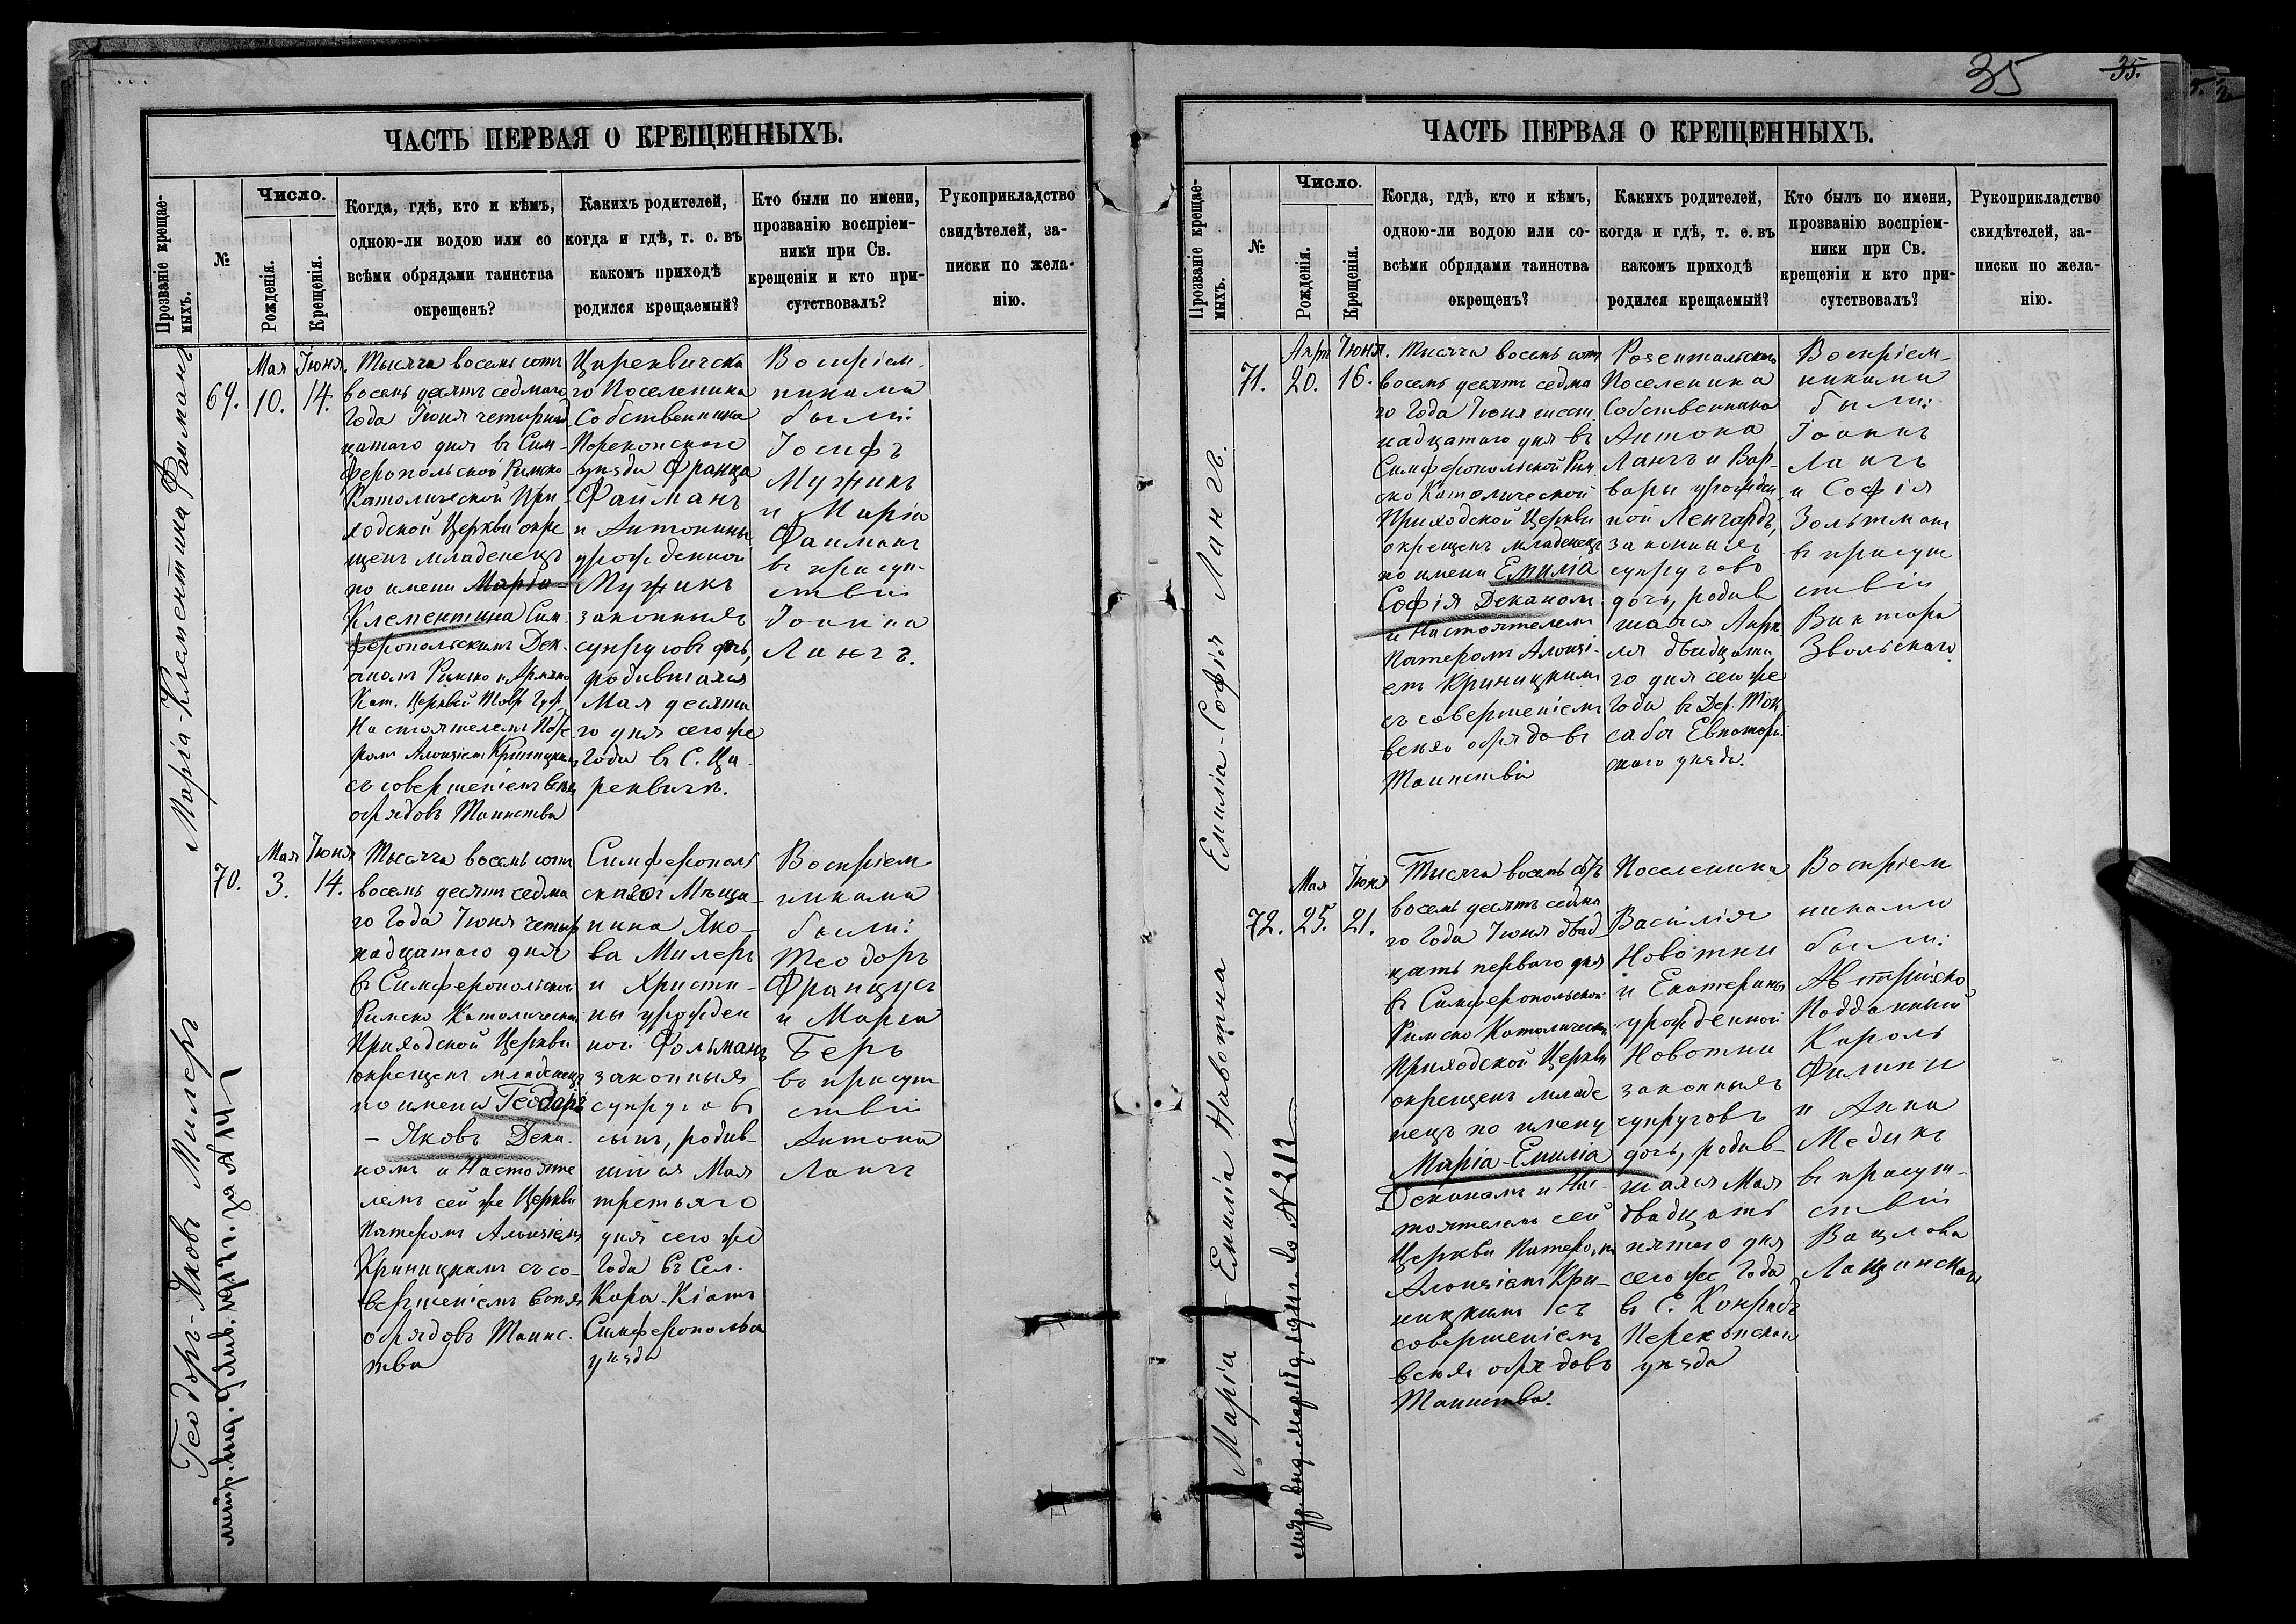 35
35.
ЧАСТЬ ПЕРВАЯ О КРЕЩЕННЫХЪ.
Прозваніе крещае-
мыхъ.
№
Число.
Рожденія.
Крещенія.
Когда, гдѣ, кто и кѣмъ,
одною-ли водою или со
всѣми обрядами таинства
окрещенъ?
Какихъ родителей,
когда и гдѣ, т. е. въ
какомъ приходѣ
родился крещаемый?
Кто были по имени,
прозванію воспріем-
ники при Св.
крещеніи и кто при-
сутствовалъ?
Рукоприкладство
свидѣтелей, за-
писки по жела-
нію.
Марія-Клементина Файманъ
69.
Мая
10.
Іюня.
14.
Тысяча восемь сотъ
восемь десятъ седмаго
Года Іюня четырнад
цатаго дня въ Сим-
феропольской Римско
Католической При
ходской Церкви окре
щенъ младенецъ
по имени Марія-
Клементина Сим-
феропольскимъ Дек-
аномъ Римско и Армяно
Кат. Церквей Тавр. Губ.
Настоятелемъ Пате
ромъ Алоизіемъ Криницкимъ
съ совершеніемъ всѣхъ
обрядовъ Таинства
Цареквичска
го Поселенина
Собственника
Перекопскаго
уѣзда Франца
Файманъ
и Антонины
урожденной
Мужикъ
законныхъ
супруговъ дочь,
родившаяся
Мая десята
го дня сего же
Года въ С. Ца
реквичъ.
Воспріем-
никами
были:
Іосифъ
Мужикъ
и Марія
Файманъ
въ присут-
ствіи
Іоанна
Лангъ.
Теодоръ-Яковъ Милеръ
70.
Мая
3.
Іюня
14.
Тысяча восемь сотъ
восемь десятъ седма
го Года Іюня четыр
надцатаго дня
въ Симферопольской
Римско Католической
Приходской Церкви
окрещенъ младенецъ
по имени Теодоръ
- Яковъ Дека-
номъ и Настояте
лемъ сей же Церкви
Патеромъ Алоизіемъ
Криницкимъ съ со-
вершеніемъ всѣхъ
обрядовъ Таинс-
тва
Симферополь
скаго Мѣща-
нина Яко-
ва Милеръ
и Христи-
ны урожден
ной Фольманъ
законныхъ
супруговъ
сынъ, родив-
шійся Мая
третьяго
дня сего же
Года въ Сел.
Кара-Кіятъ
Симферополька
уѣзда
Воспріем
никами
были:
Теодоръ
Францусъ
и Марія
Беръ
въ присут
ствіи
Антона
Лангъ
ЧАСТЬ ПЕРВАЯ О КРЕЩЕННЫХЪ.
Прозваніе крещае-
мыхъ.
№
Число.
Рожденія.
Крещенія.
Когда, гдѣ, кто и кѣмъ,
одною-ли водою или со-
всѣми обрядами таинства
окрещенъ?
Какихъ родителей,
когда и гдѣ, т. е. въ
какомъ приходѣ
родился крещаемый?
Кто былъ по имени,
прозванію воспріем-
ники при Св.
крещеніи и кто при-
сутствовалъ?
Рукоприкладство
свидѣтелей, за-
писки по жела-
нію.
Емилія-Софія Лангъ.
71.
Апрѣ
20.
Іюня.
16.
Тысяча восемь сотъ
восемь десятъ седма
го Года Іюня шест
надцатаго дня въ
Симферопольской Рим
ско Католической
Приходской Церкви
окрещенъ младенецъ
по имени Емилія
Софія Деканом
и Настоятелемъ
Патеромъ Алоизі-
емъ Криницкимъ
съ совершеніемъ
всѣхъ обрядовъ
Таинства
Розентальскаго
Поселенина
Собственника
Антона
Лангъ и Вар-
вары урожден
ной Ленгардъ,
законныхъ
супруговъ
дочь, родив
шаяся Апрѣ
ля двадцата
го дня сего же
Года въ Дер. Ток
саба Евпатори-
скаго уѣзда.
Воспріем-
никами
были:
Іоаннъ
Лангъ
и Софія
Зольтманъ
въ присут
ствіи
Виктора
Звольскаго.
Марія-Емилія Навотна
72.
Мая
25.
Іюня
21.
Тысяча восемь сотъ
восемь десятъ седма
го Года Іюня двад-
цать перваго дня
въ Симферопольской
Римско Католической
Приходской Церкви
окрещенъ младе
нецъ по имени
Марія-Емилія
Деканомъ и Нас-
тоятелемъ сей
Церкви Патеромъ
Алоизіемъ Кри-
ницкимъ съ
совершеніемъ
всѣхъ обрядовъ
Таинства.
Поселенина
Василія
Новотни
и Екатерины
урожденной
Новотни
законныхъ
супруговъ
дочь, родив-
шаяся Мая
двадцать
пятаго дня
сего же Года
въ С. Конрадъ
Перекопскаго
уѣзда
Воспріем
никами
были:
Австрійско
Подданный
Кароль
Филипи
и Анна
Медикъ
въ присут-
ствіи
Вацлава
Лащинскаго